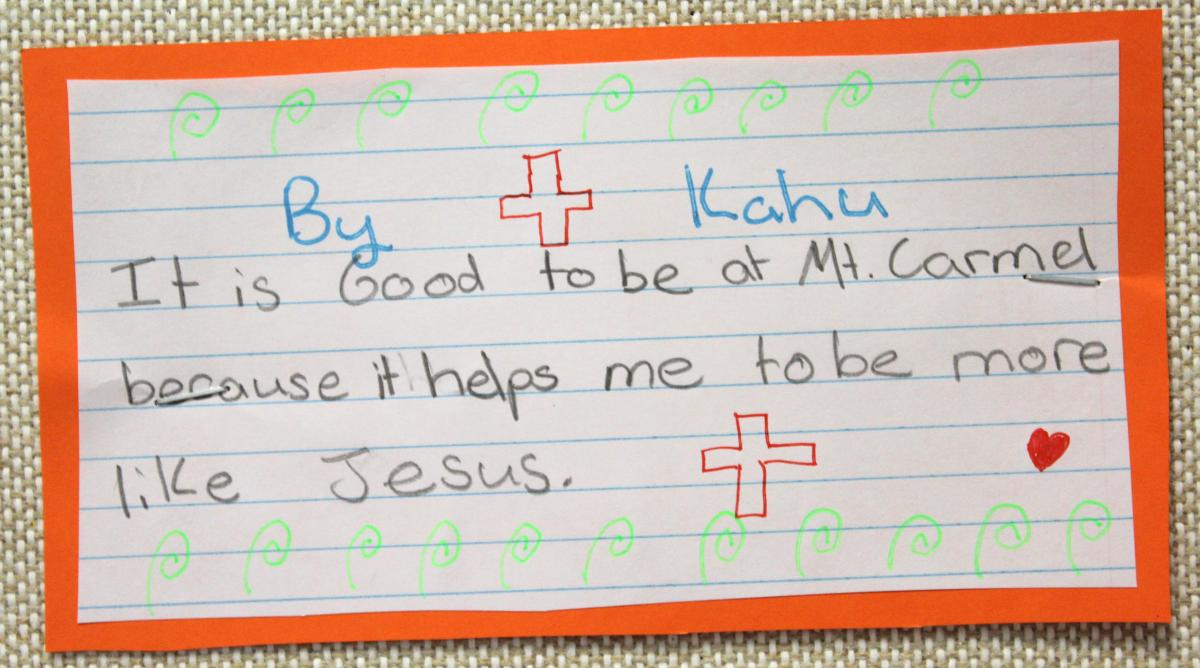 By Kahu
It is Good to be at Mt. Carmel
because it helps me to be more
like Jesus.